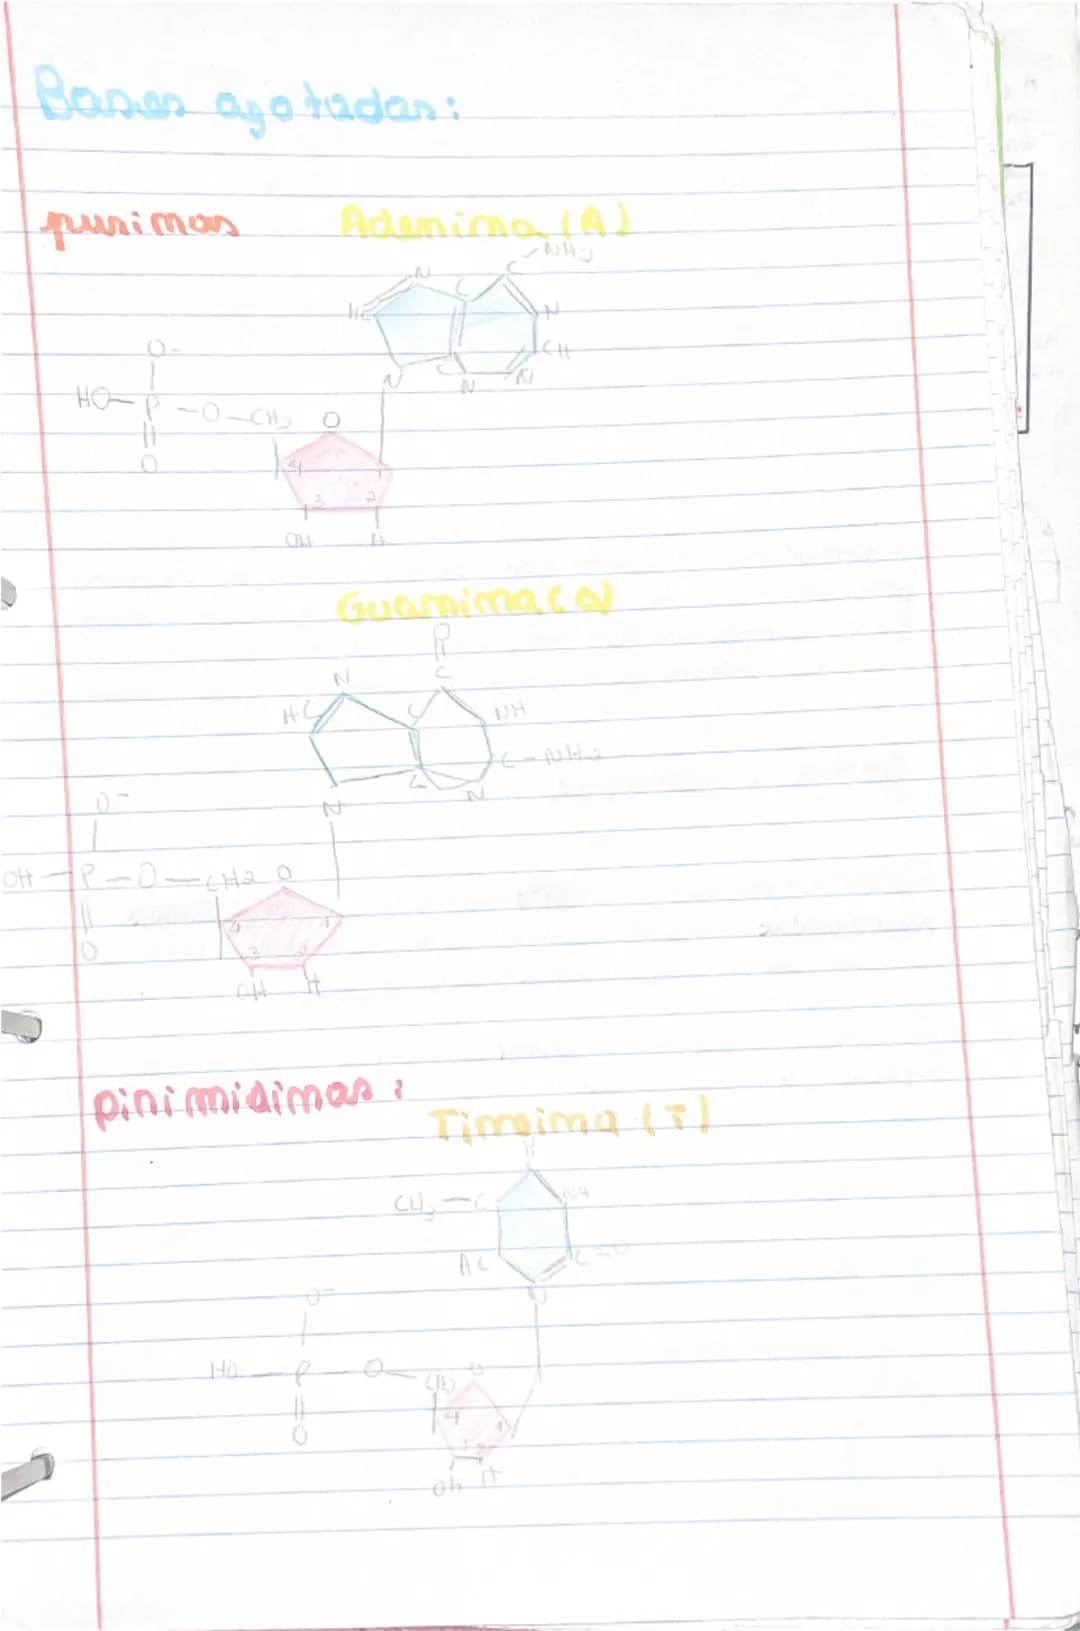 Bases azotadas:
purinas Adenina (A)
NH2
N C C
HC N
O- C CH
N N N
HO-P-O-CH2 O
O 4 1
3 2
OH H
Guanina (G)
O
C
N
HC C NH
C-NH2
C N
O- N
OH-P-O-CH2 O
4 1
O 3 2
OH H
pirimidinas:
Timina (T)
CH3-C NH
HC C=O
O- N
HO-P-O-CH2 O
4 1
O 3 2
OH H